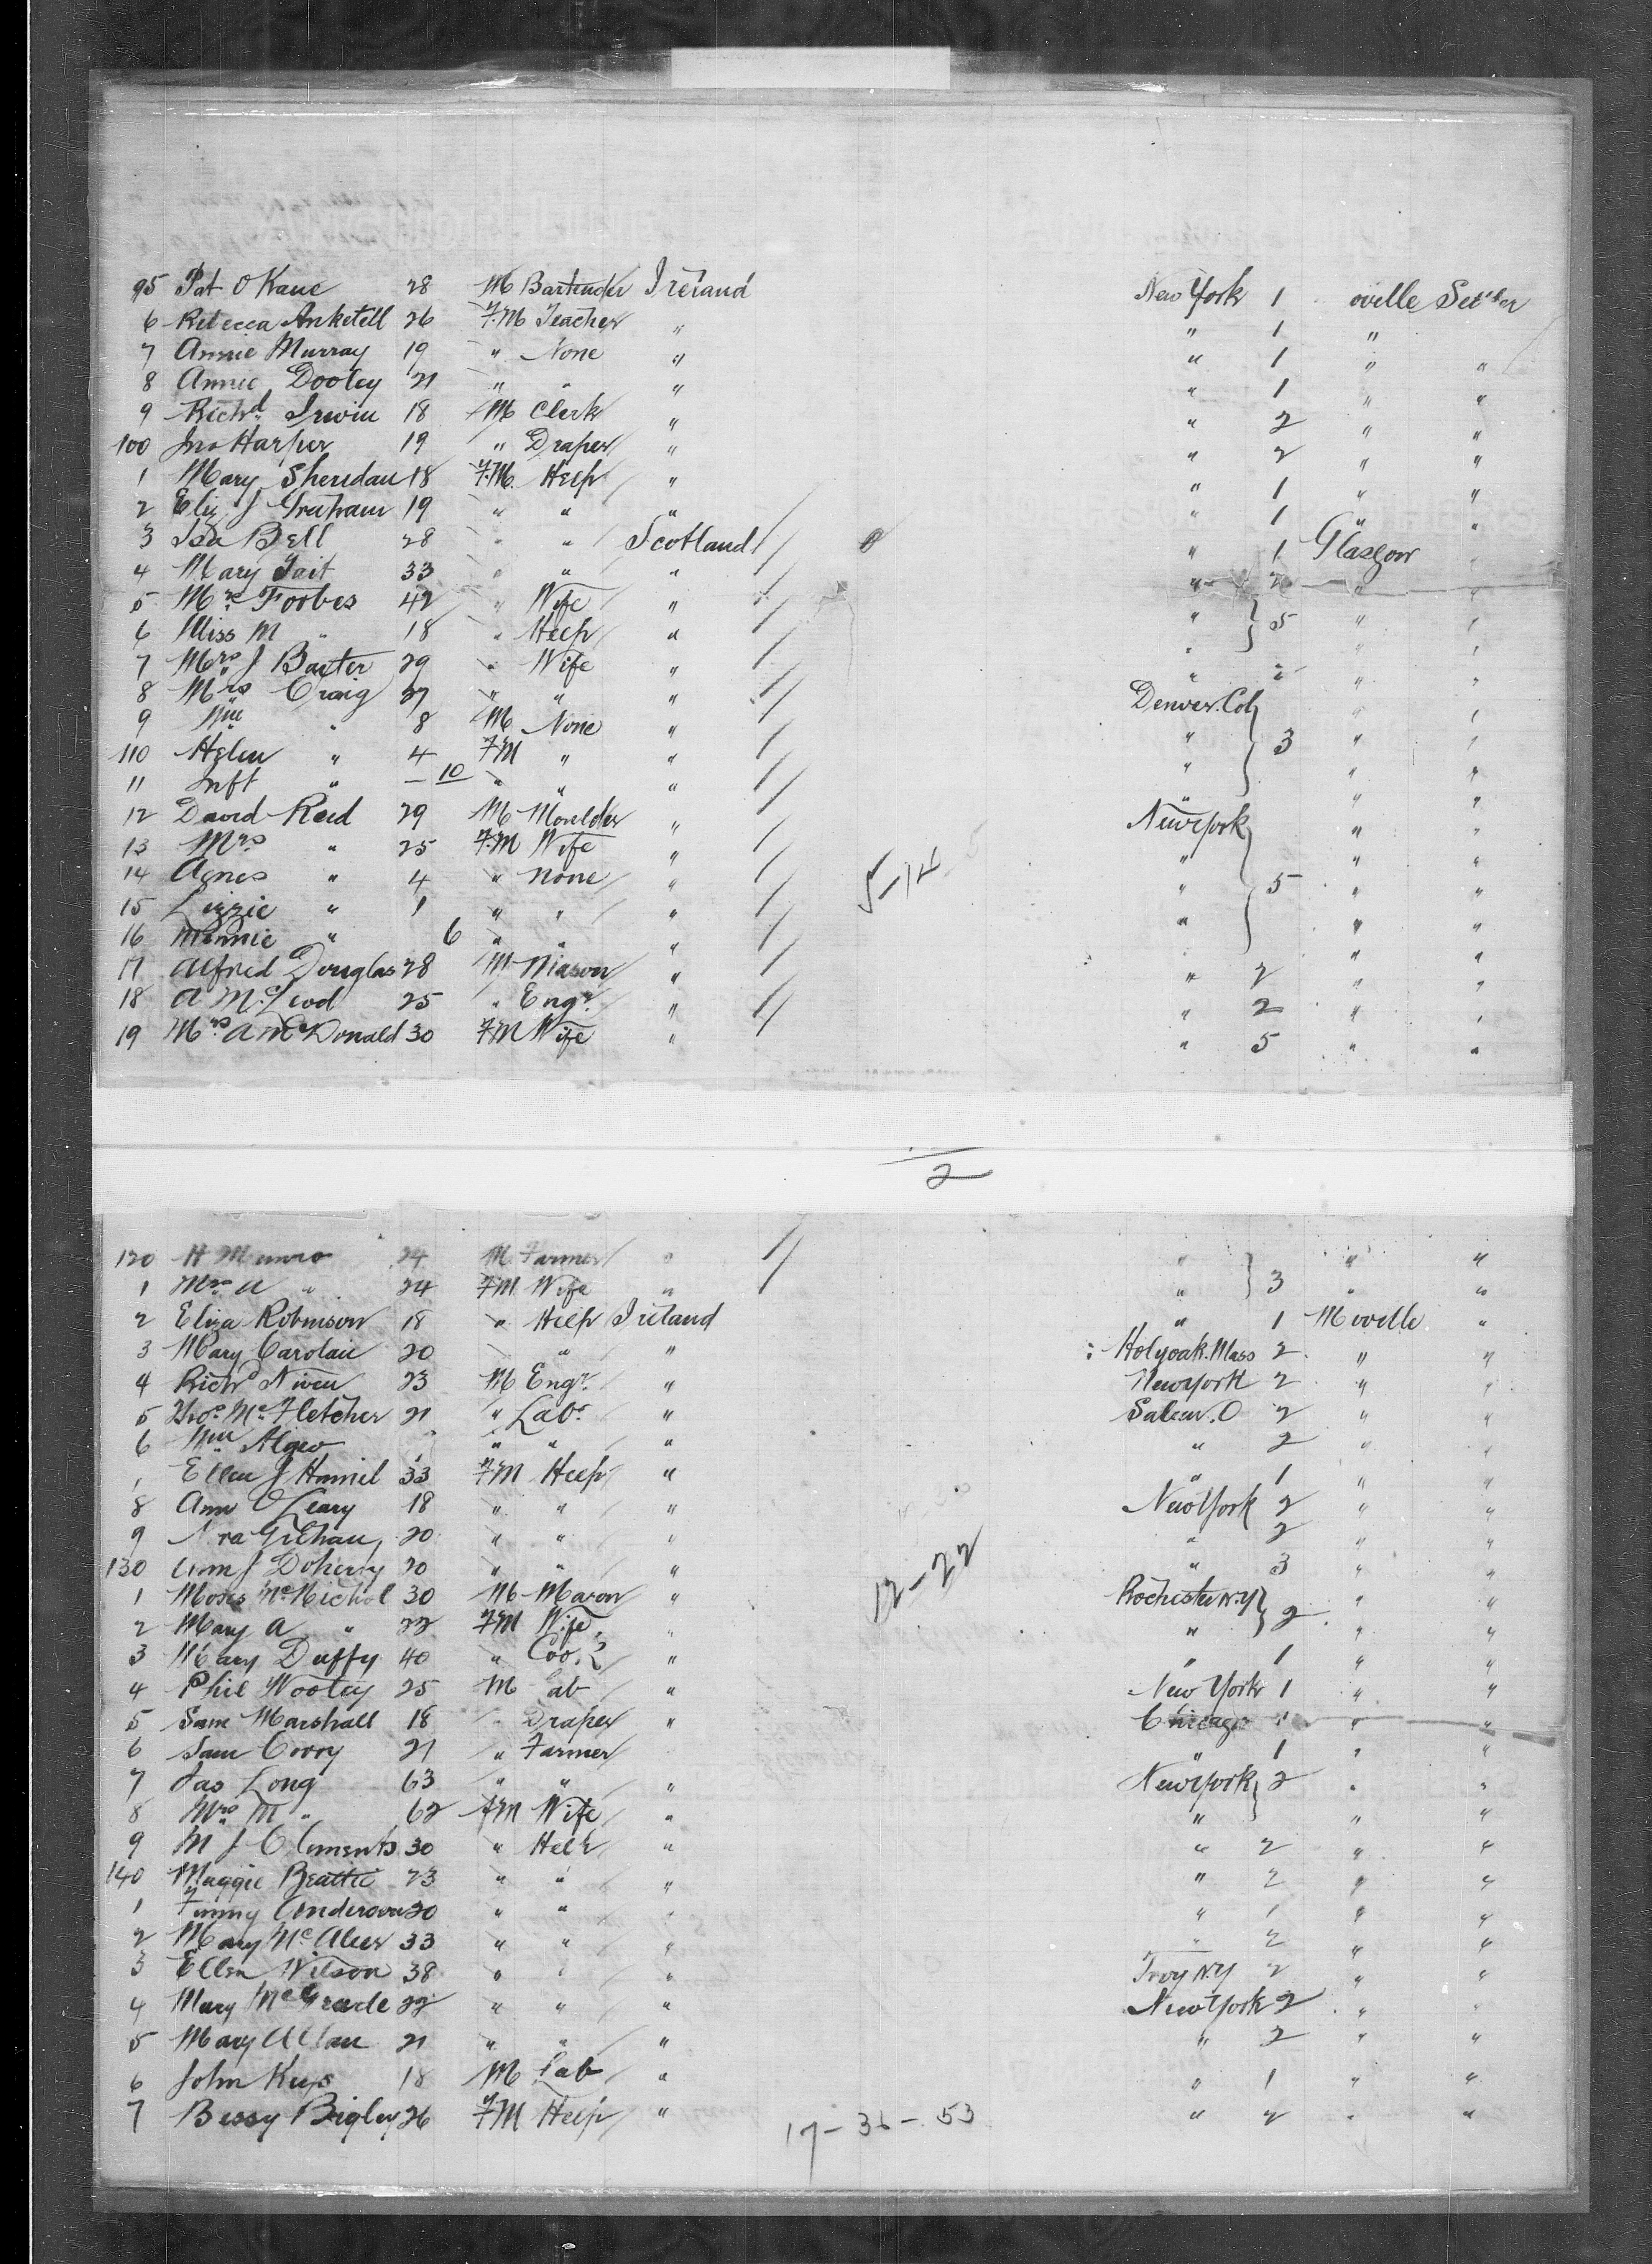 95 Pat O Kane 28 M Bartender Ireland New York 1 oville Settler
6 Rebecca Anketell 26 F.M Teacher " " 1 "
7 Annie Murray 19 " None " " 1 " "
8 Annie Dooley 21 " " " " 1 " "
9 Richd Irwin 18 M Clerk " " 2 " "
100 Jno Harper 19 " Draper " " 2 " "
1 Mary Sheridan 18 F.M. Help " " 1 " "
2 Eliz J Graham 19 " " " " 1 " "
3 Isa Bell 28 " " Scotland " 1 Glasgow "
4 Mary Tait 33 " " " " 2 " "
5 Mrs Forbes 42 " Wife " " 5 " "
6 Miss M " 18 " Help " " " "
7 Mrs J Baxter 29 " Wife " " " "
8 Mrs Craig 27 " " " Denver. Col " "
9 Wm " 8 M None " " 3 " "
110 Helen " 4 FM " " " " "
11 Inft " - 10 " " " " " "
12 David Reid 29 M Moulder " New York " "
13 Mrs " 25 F.M Wife " " " "
14 Agnes " 4 " None " " 5 " "
15 Lizzie " 1 " " " " " "
16 Minnie " 6 " " " " "
5-14
17 Alfred Douglas 28 M Mason " " 2 " "
18 A McLeod 25 " Engr " " 2 " "
19 Mrs A McDonald 30 FM Wife " " 5 " "
2
120 H Munro 24 M Farmer " " 3 " "
1 Mrs A " 24 FM Wife " " " "
2 Eliza Robinson 18 " Help Ireland " 1 Moville "
3 Mary Carolan 20 " " " Holyoak. Mass 2 " "
4 Richd Niven 23 M Engr. " New York 2 " "
5 Thos McFletcher 21 " Labr " Salem. O 2 " "
6 Wm Algeo " " " " 2 " "
Ellen J Hamil 33 FM Help " " 1 " "
8 Ann O Leary 18 " " " New York 2 " "
9 20 " " " " 2 " "
130 Ann J Doherty 20 " " " " 3 " "
12-22
1 Moses McNichol 30 M Mason " Rochester N.Y 2 " "
2 Mary A " 22 FM Wife " " " "
3 Mary Duffy 40 " Cook " " 1 " "
4 Phil Wooley 25 M Lab " New York 1 " "
5 Sam Marshall 18 " Draper " Chicago 1 " "
6 Sam Corry 21 " Farmer " 1 " "
7 Jas Long 63 " " " New York 2 " "
8 Mrs M " 62 FM Wife " " " "
9 M J Clements 30 " Help " " 2 " "
140 Maggie Beattie 23 " " " " 2 " "
1 Anderson 20 " " " " 1 " "
2 Mary McAleer 33 " " " " 2 " "
3 Ellen Wilson 38 " " " Troy N.Y 2 " "
4 Mary McGrade 22 " " " New York 2 " "
5 Mary Allan 21 " " " " 2 " "
6 John Keys 18 M Lab " " 1 " "
7 Bessy Bigley 26 FM Help " " 2 " "
17-36-53